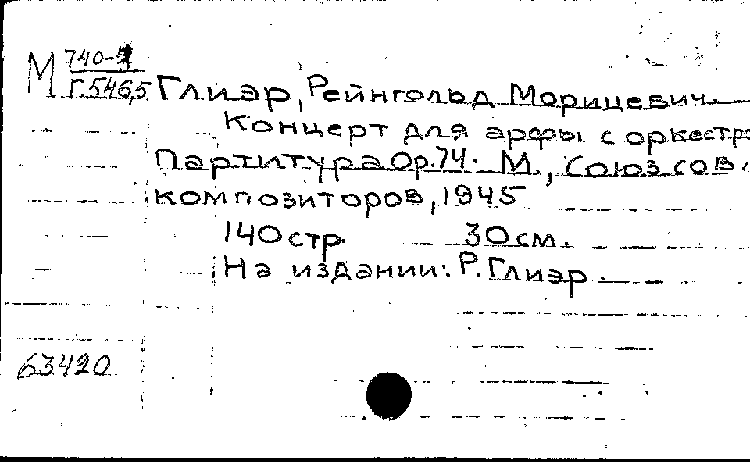 М 740-4
Г.546,5 Глиэр, Рейнгольд Морицевич.
Концерт для арфы с оркестро
Партитура Op.74. М., Союз сов.
композиторов, 1945
140 стр. 30 см.
На издании: Р. Глиэр.
63420